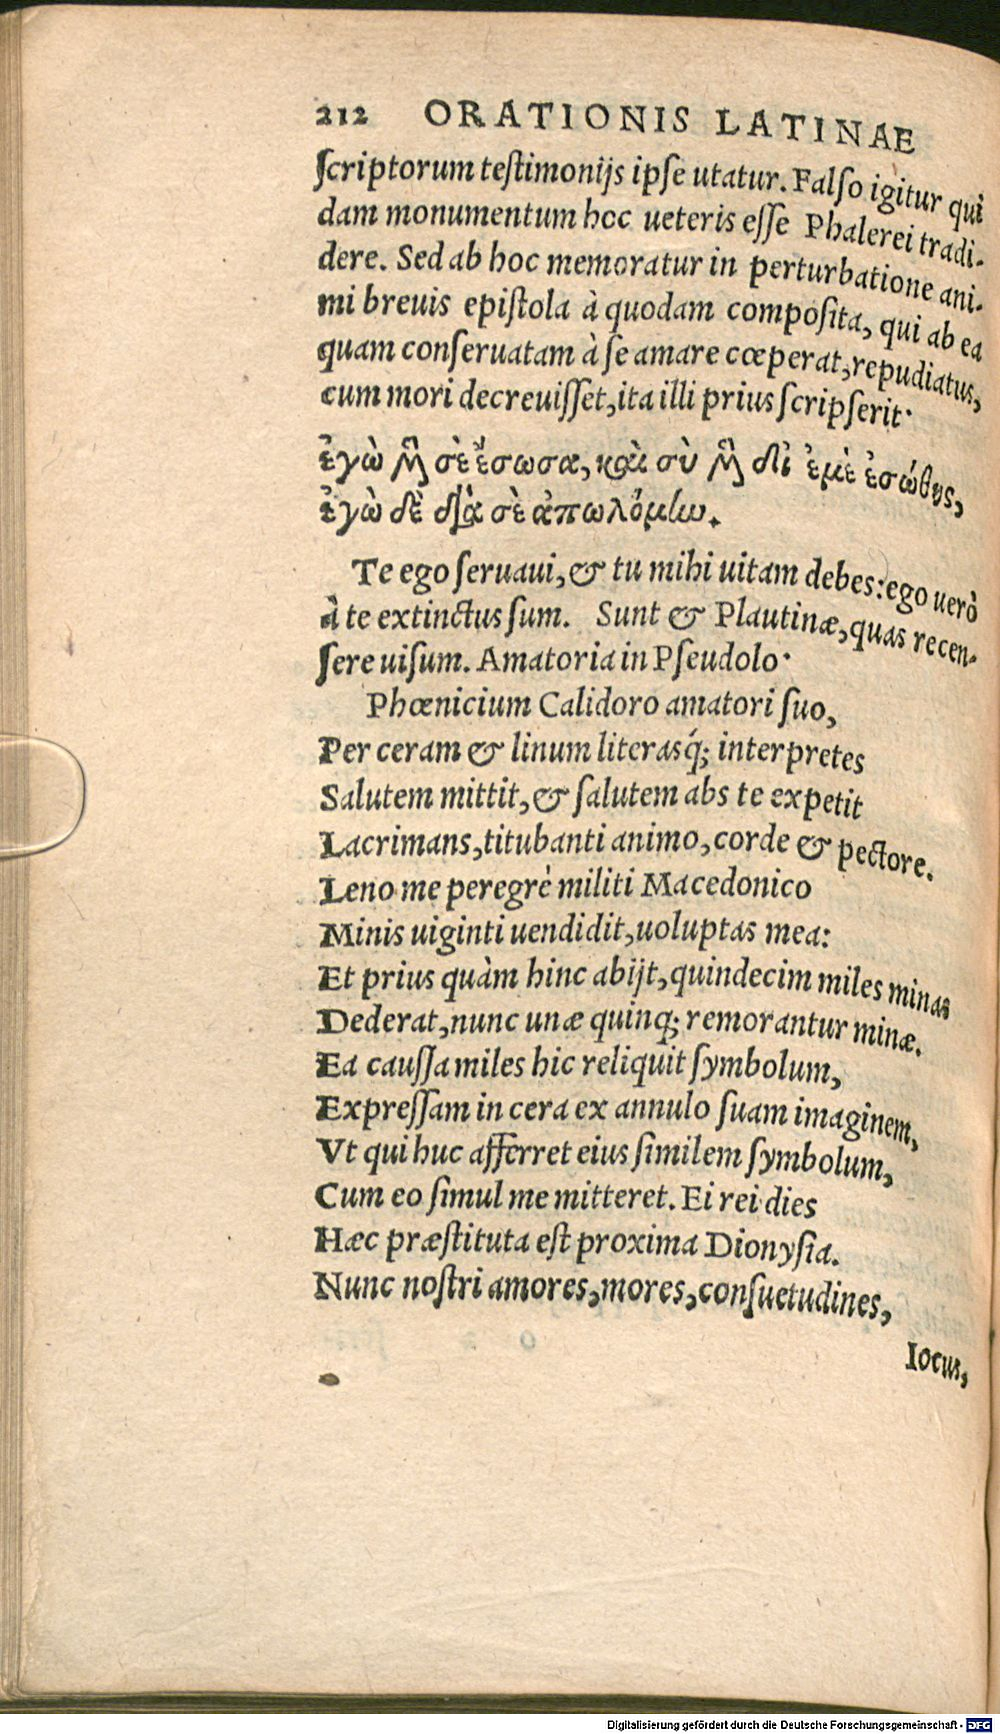 212 ORATIONIS LATINAE
ſcriptorum teſtimonijs ipſe utatur. Falſo igitur qui
dam monumentum hoc ueteris eſſe Phalerei tradi-
dere. Sed ab hoc memoratur in perturbatione ani-
mi breuis epiſtola à quodam compoſita, qui ab ea
quam conſeruatam à ſe amare cœperat, repudiatus,
cum mori decreuiſſet, ita illi prius ſcripſerit·
ἐγὼ μὲν σὲ ἔσωσα, καὶ σὺ μὲν δι᾽ ἐμὲ ἐσώθης,
ἐγὼ δὲ διὰ σὲ ἀπωλόμην.
Te ego ſeruaui, & tu mihi uitam debes: ego uerò
à te extinctus ſum. Sunt & Plautinæ, quas recen-
ſere uiſum. Amatoria in Pſeudolo·
Phœnicium Calidoro amatori ſuo,
Per ceram & linum literasq́; interpretes
Salutem mittit, & ſalutem abs te expetit
Lacrimans, titubanti animo, corde & pectore.
Leno me peregrè militi Macedonico
Minis uiginti uendidit, uoluptas mea:
Et prius quàm hinc abijt, quindecim miles minas
Dederat, nunc unæ quinq; remorantur minæ.
Ea cauſſa miles hic reliquit ſymbolum,
Expreſſam in cera ex annulo ſuam imaginem,
Vt qui huc afferret eius ſimilem ſymbolum,
Cum eo ſimul me mitteret. Ei rei dies
Hæc præſtituta eſt proxima Dionyſia.
Nunc noſtri amores, mores, conſuetudines,
Iocus,
Digitalisierung gefördert durch die Deutsche Forschungsgemeinschaft - DFG